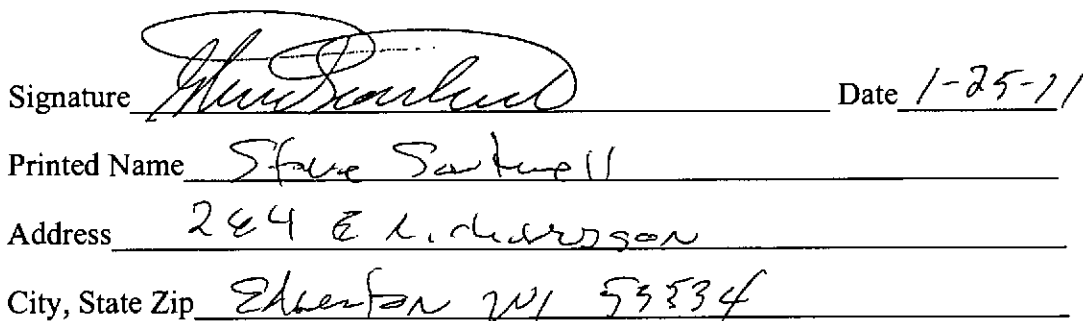 Signature Date 1-25-11
Printed Name Steve Sartwell
Address 264 E Richardson
City, State Zip Edgerton WI 53534